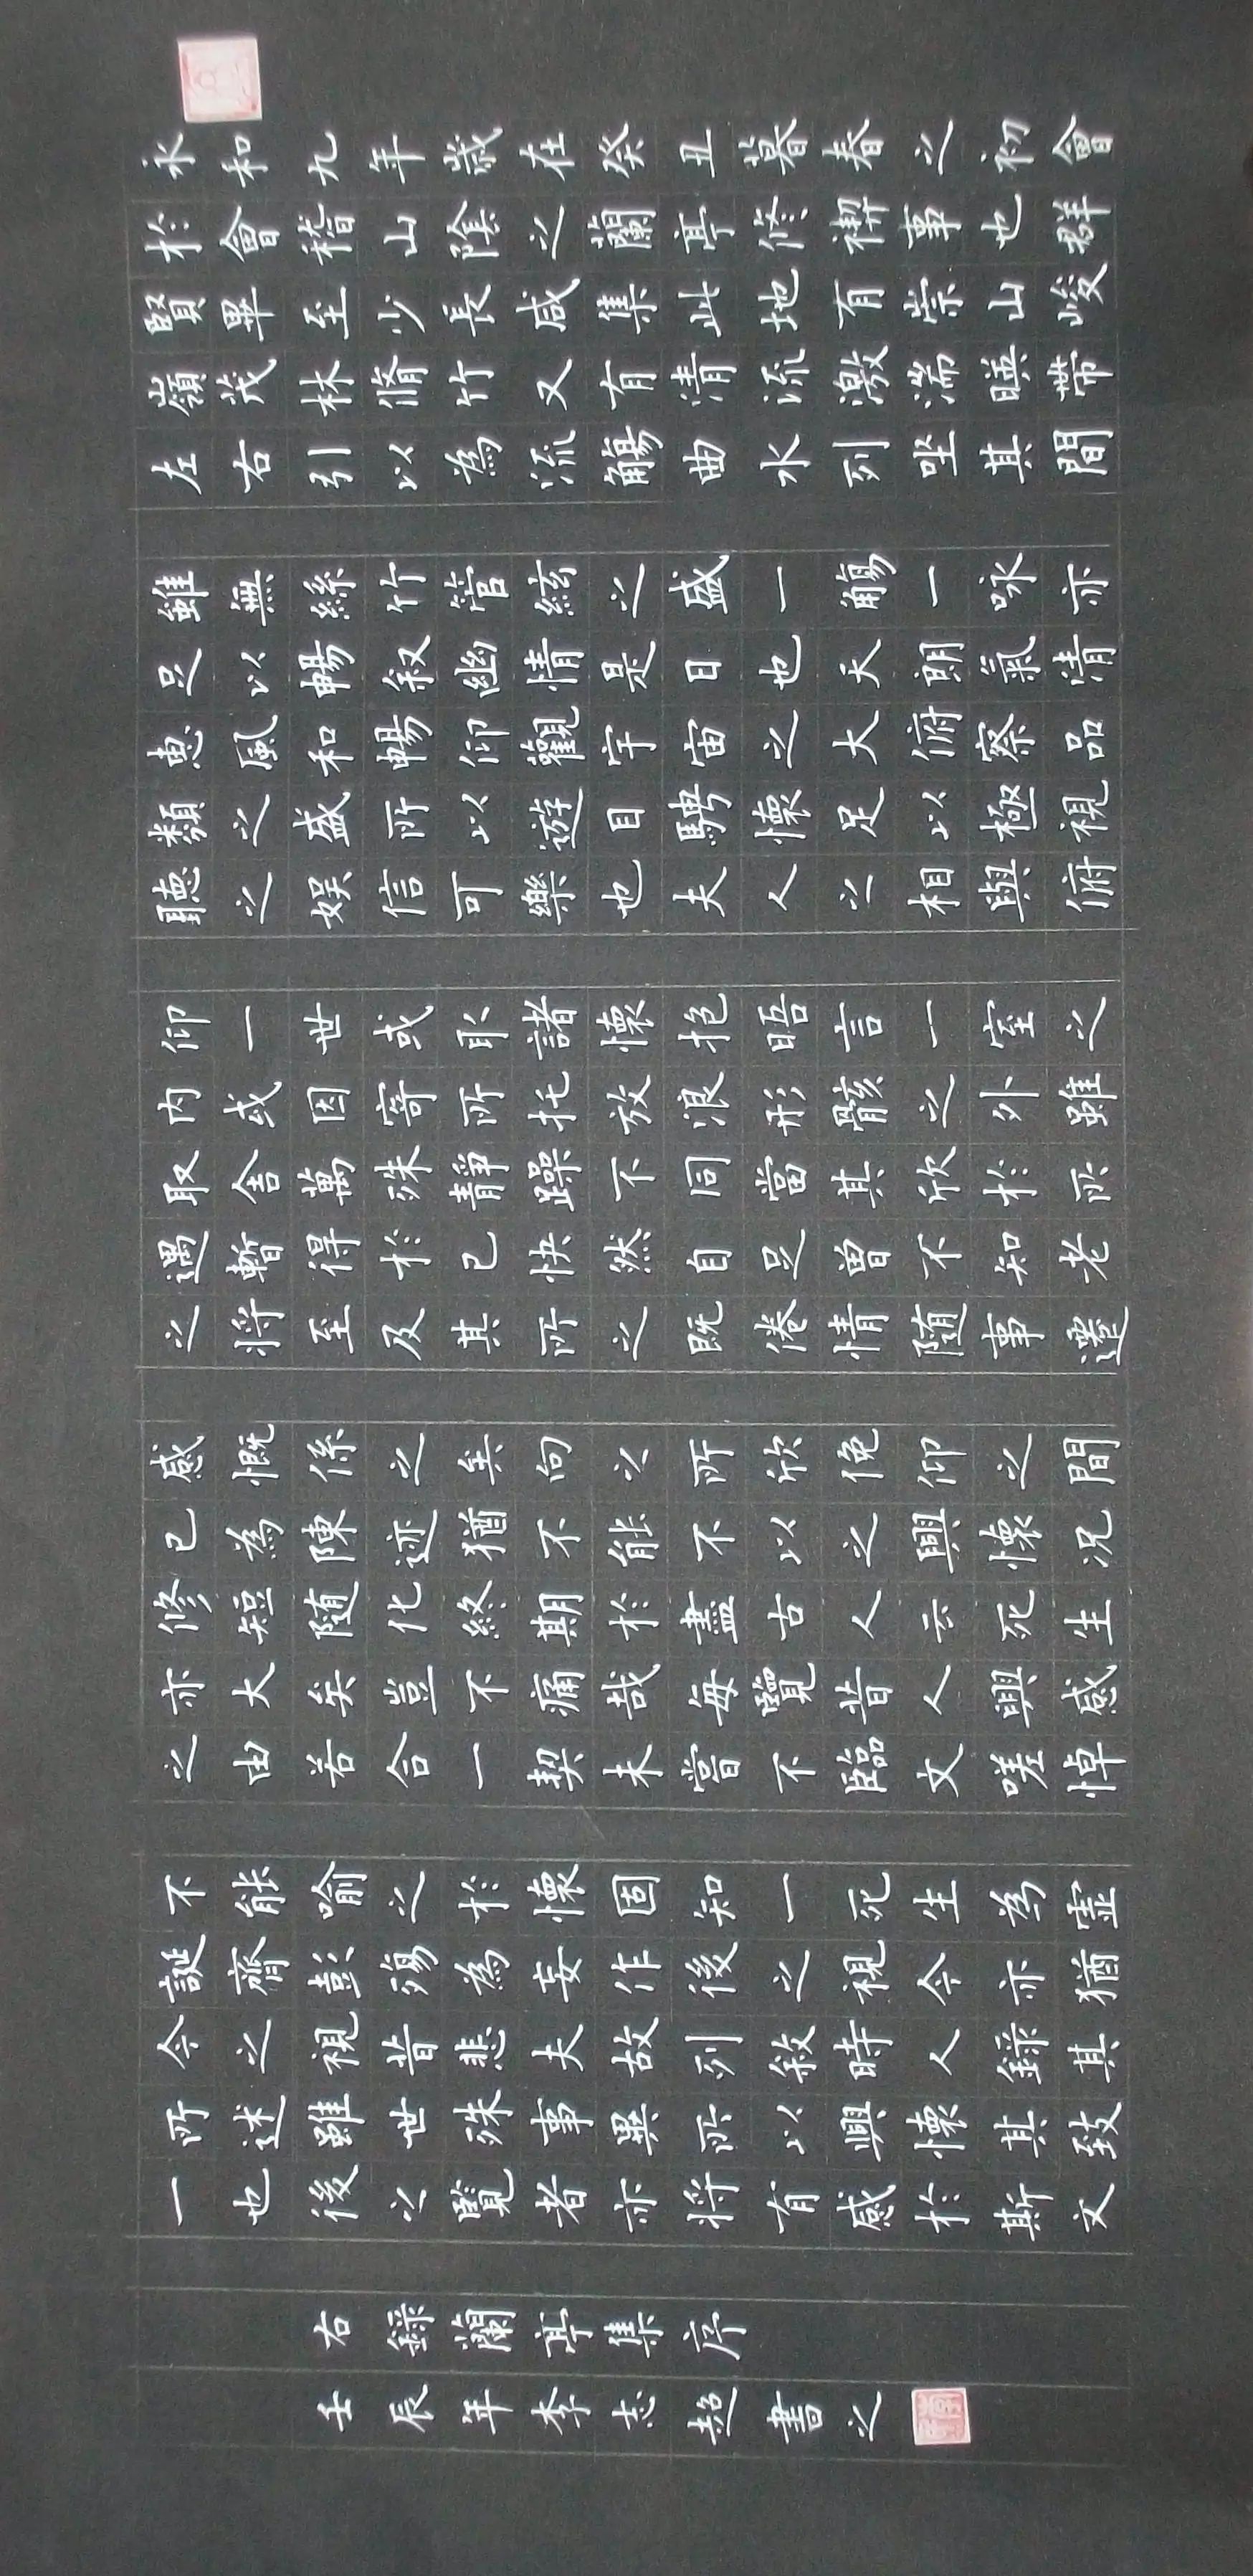 永和九年歲在癸丑暮春之初會
於會稽山陰之蘭亭修禊事也群
賢畢至少長咸集此地有崇山峻
嶺茂林脩竹又有清流激湍暎帶
左右引以為流觴曲水列坐其間
雖無絲竹管絃之盛一觴一咏亦
足以暢叙幽情是日也天朗氣清
惠風和暢仰觀宇宙之大俯察品
類之盛所以遊目騁懷足以極視
聽之娛信可樂也夫人之相與俯
仰一世或取諸懷抱晤言一室之
內或因寄所托放浪形骸之外雖
取舍萬殊靜躁不同當其欣於所
遇暫得於己快然自足曾不知老
之將至及其所之既倦情隨事遷
感慨係之矣向之所欣俛仰之間
已為陳迹猶不能不以之興懷况
修短隨化終期於盡古人云死生
亦大矣豈不痛哉每覽昔人興感
之由若合一契未嘗不臨文嗟悼
不能喻之於懷固知一死生為虛
誕齊彭殤為妄作後之視今亦猶
今之視昔悲夫故列敘時人錄其
所述雖世殊事異所以興懷其致
一也後之覽者亦將有感於斯文
右錄蘭亭集序
壬辰年李志超書之